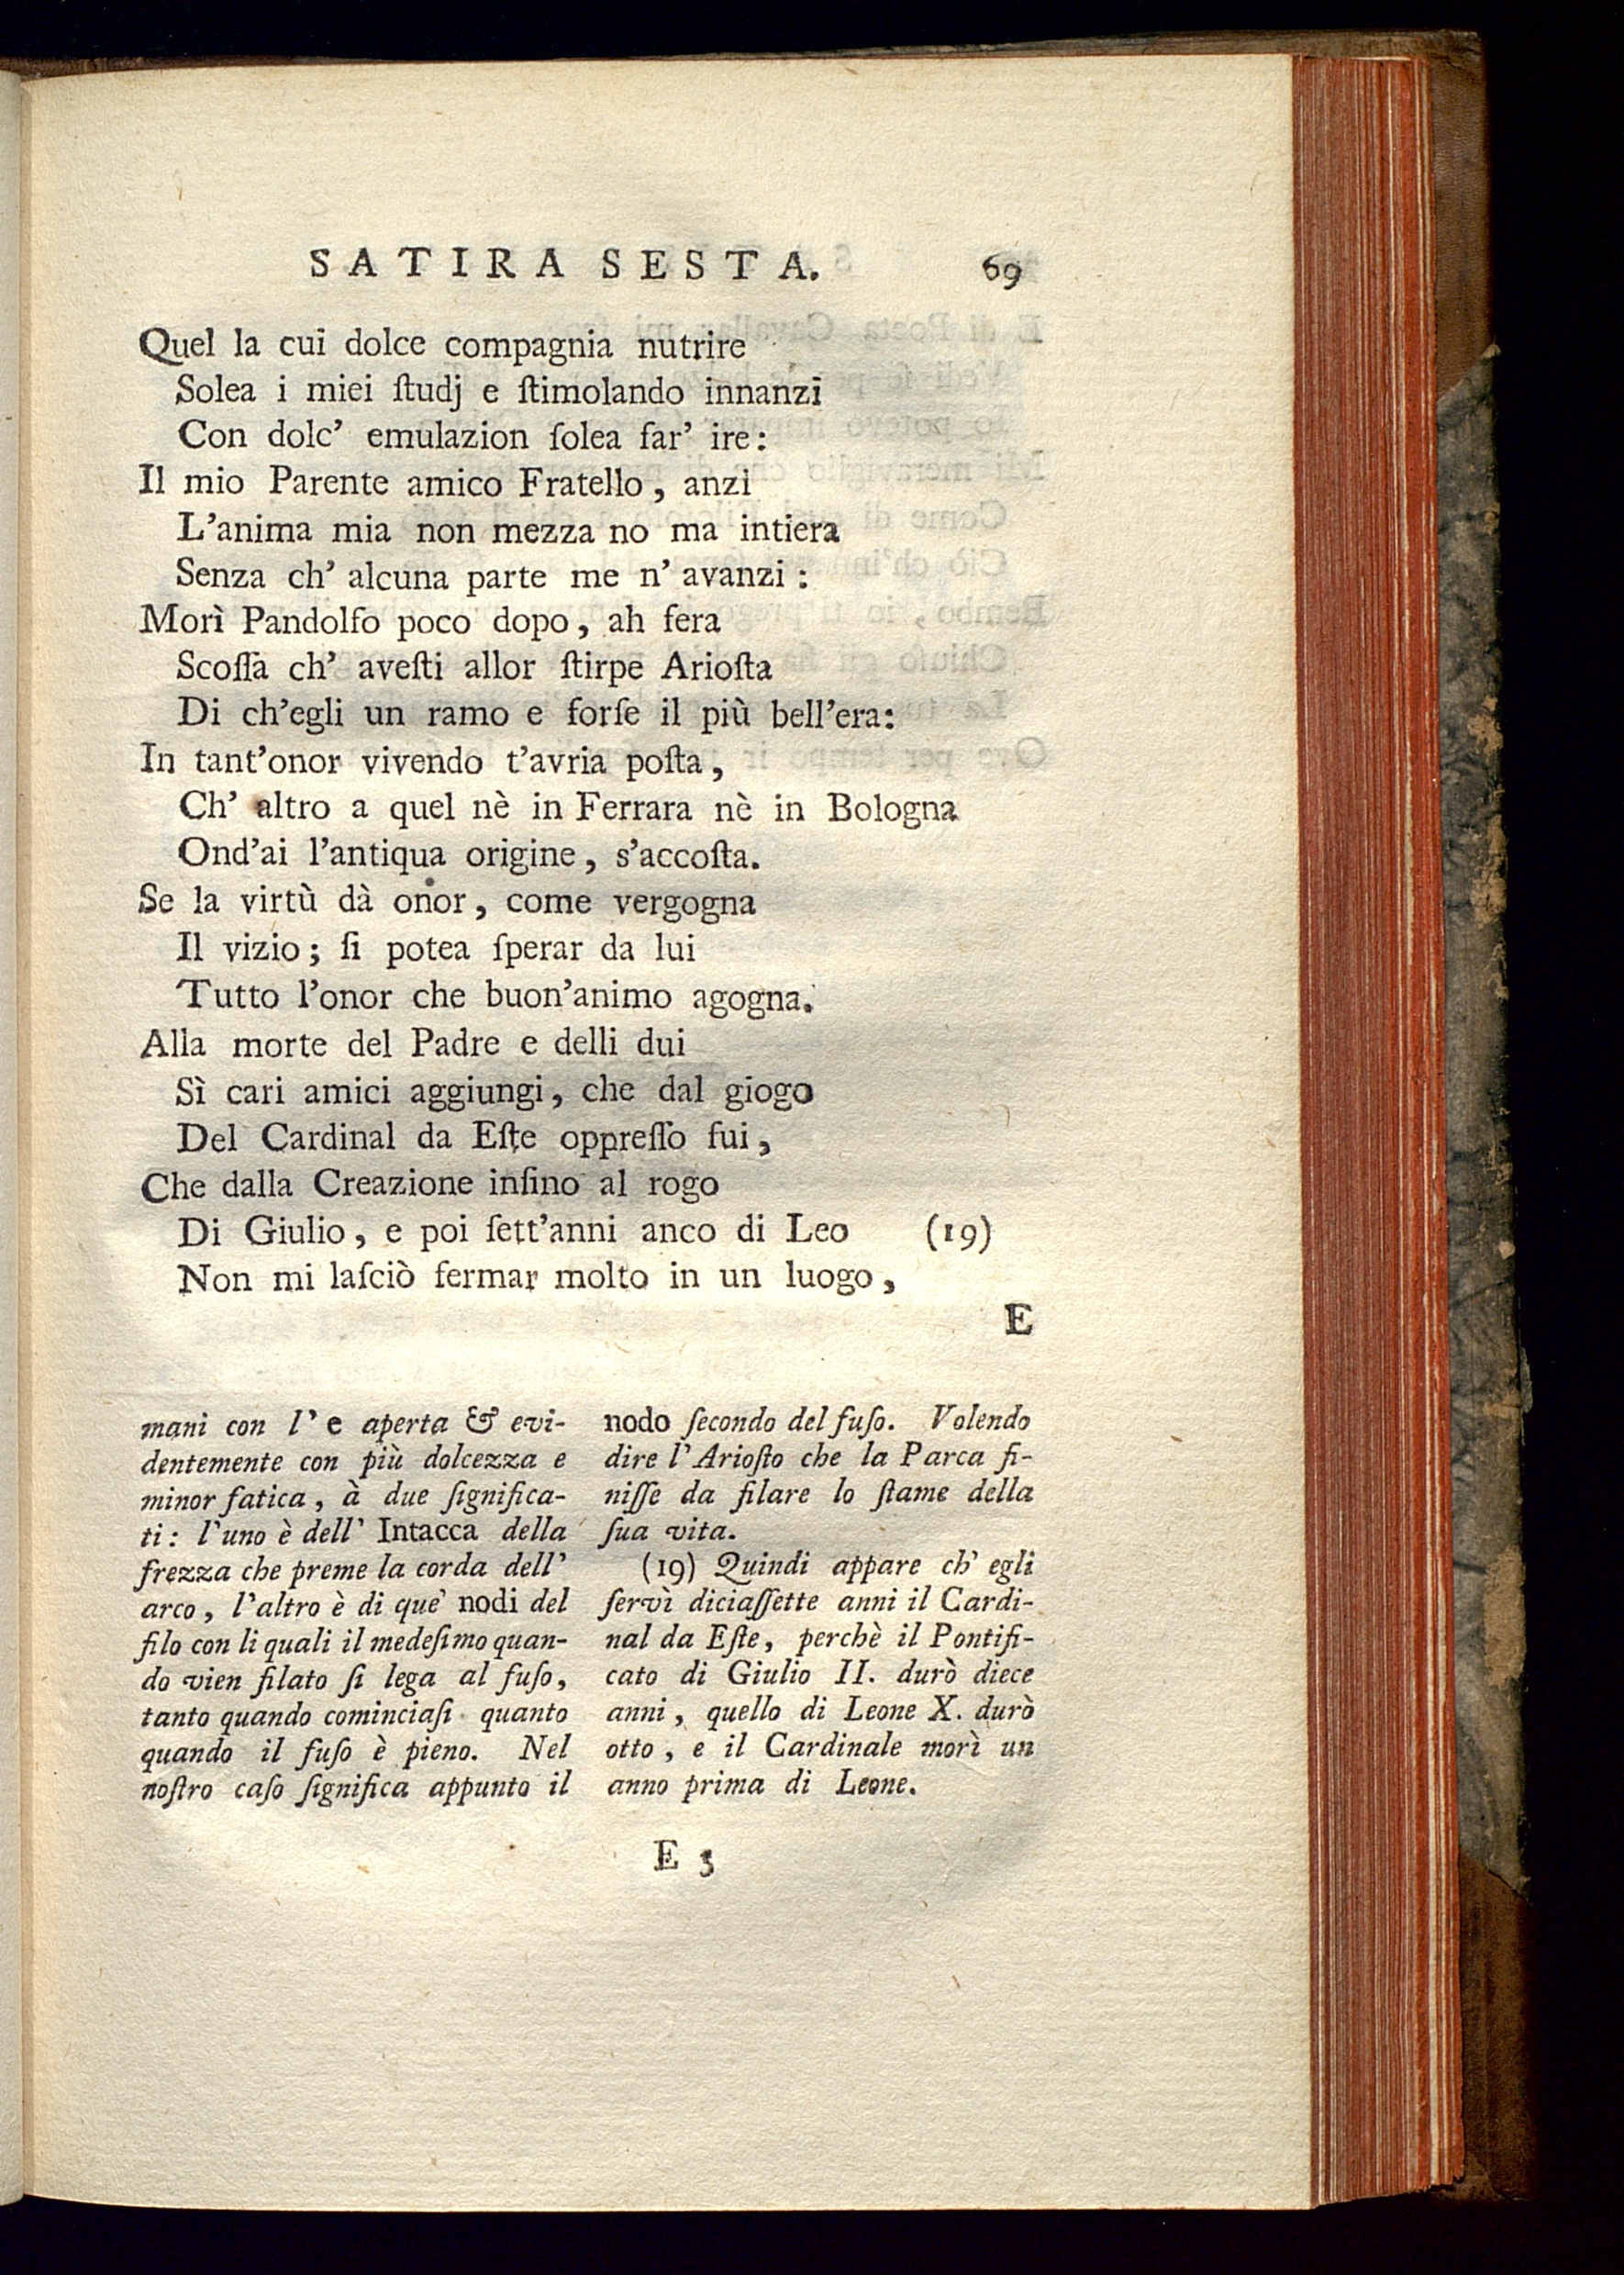 SATIRA SESTA. 69
Quel la cui dolce compagnia nutrire
Solea i miei ſtudj e ſtimolando innanzi
Con dolc' emulazion ſolea far' ire:
Il mio Parente amico Fratello, anzi
L'anima mia non mezza no ma intiera
Senza ch' alcuna parte me n' avanzi:
Morì Pandolfo poco dopo, ah fera
Scoſſa ch' aveſti allor ſtirpe Arioſta
Di ch'egli un ramo e forſe il più bell'era:
In tant'onor vivendo t'avria poſta,
Ch' altro a quel nè in Ferrara nè in Bologna
Ond'ai l'antiqua origine, s'accoſta.
Se la virtù dà onor, come vergogna
Il vizio; ſi potea ſperar da lui
Tutto l'onor che buon'animo agogna.
Alla morte del Padre e delli dui
Sì cari amici aggiungi, che dal giogo
Del Cardinal da Eſte oppreſſo fui,
Che dalla Creazione inſino al rogo
Di Giulio, e poi ſett'anni anco di Leo (19)
Non mi laſciò fermar molto in un luogo,
E
mani con l' e aperta & evi-
dentemente con più dolcezza e
minor fatica, à due ſignifica-
ti: l'uno è dell' Intacca della
frezza che preme la corda dell'
arco, l'altro è di que' nodi del
filo con li quali il medeſimo quan-
do vien filato ſi lega al fuſo,
tanto quando cominciaſi quanto
quando il fuſo è pieno. Nel
noſtro caſo ſignifica appunto il
nodo ſecondo del fuſo. Volendo
dire l' Arioſto che la Parca fi-
niſſe da filare lo ſtame della
ſua vita.
(19) Quindi appare ch' egli
ſervì diciaſſette anni il Cardi-
nal da Eſte, perchè il Pontifi-
cato di Giulio II. durò diece
anni, quello di Leone X. durò
otto, e il Cardinale morì un
anno prima di Leone.
E 3